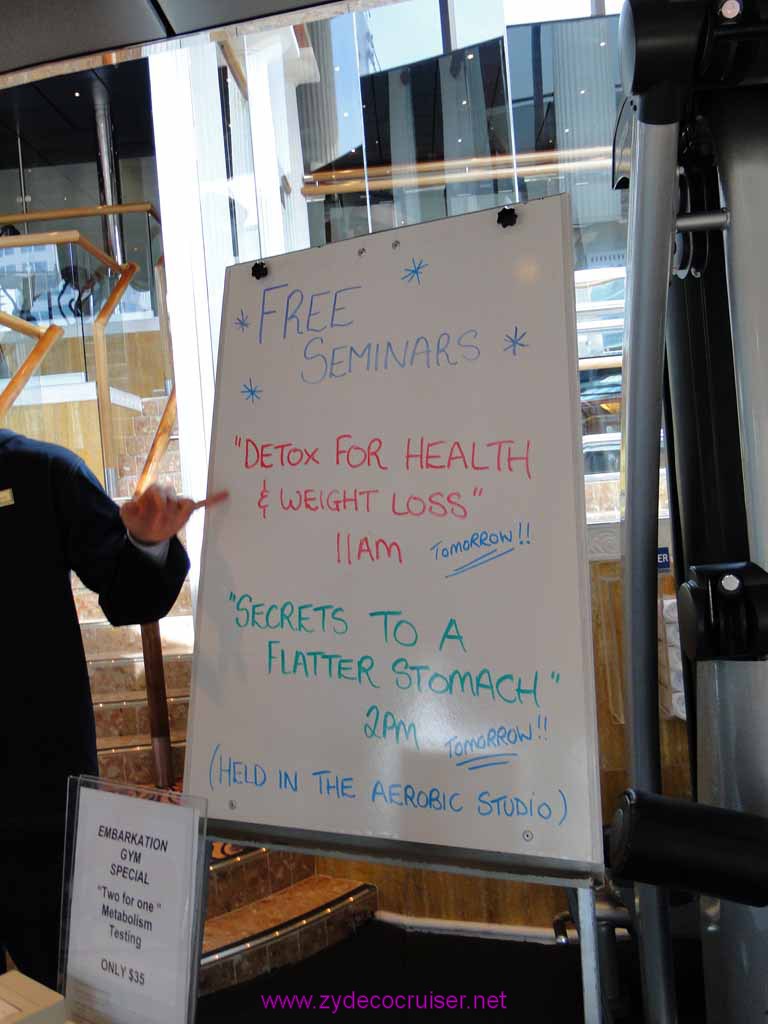 FREE
SEMINARS
"DETOX FOR HEALTH
& WEIGHT LOSS"
11AM TOMORROW!!
"SECRETS TO A
FLATTER STOMACH"
2PM TOMORROW!!
(HELD IN THE AEROBIC STUDIO)
EMBARKATION
GYM
SPECIAL
"Two for one"
Metabolism
Testing
ONLY $35
ER
www.zydecocruiser.net